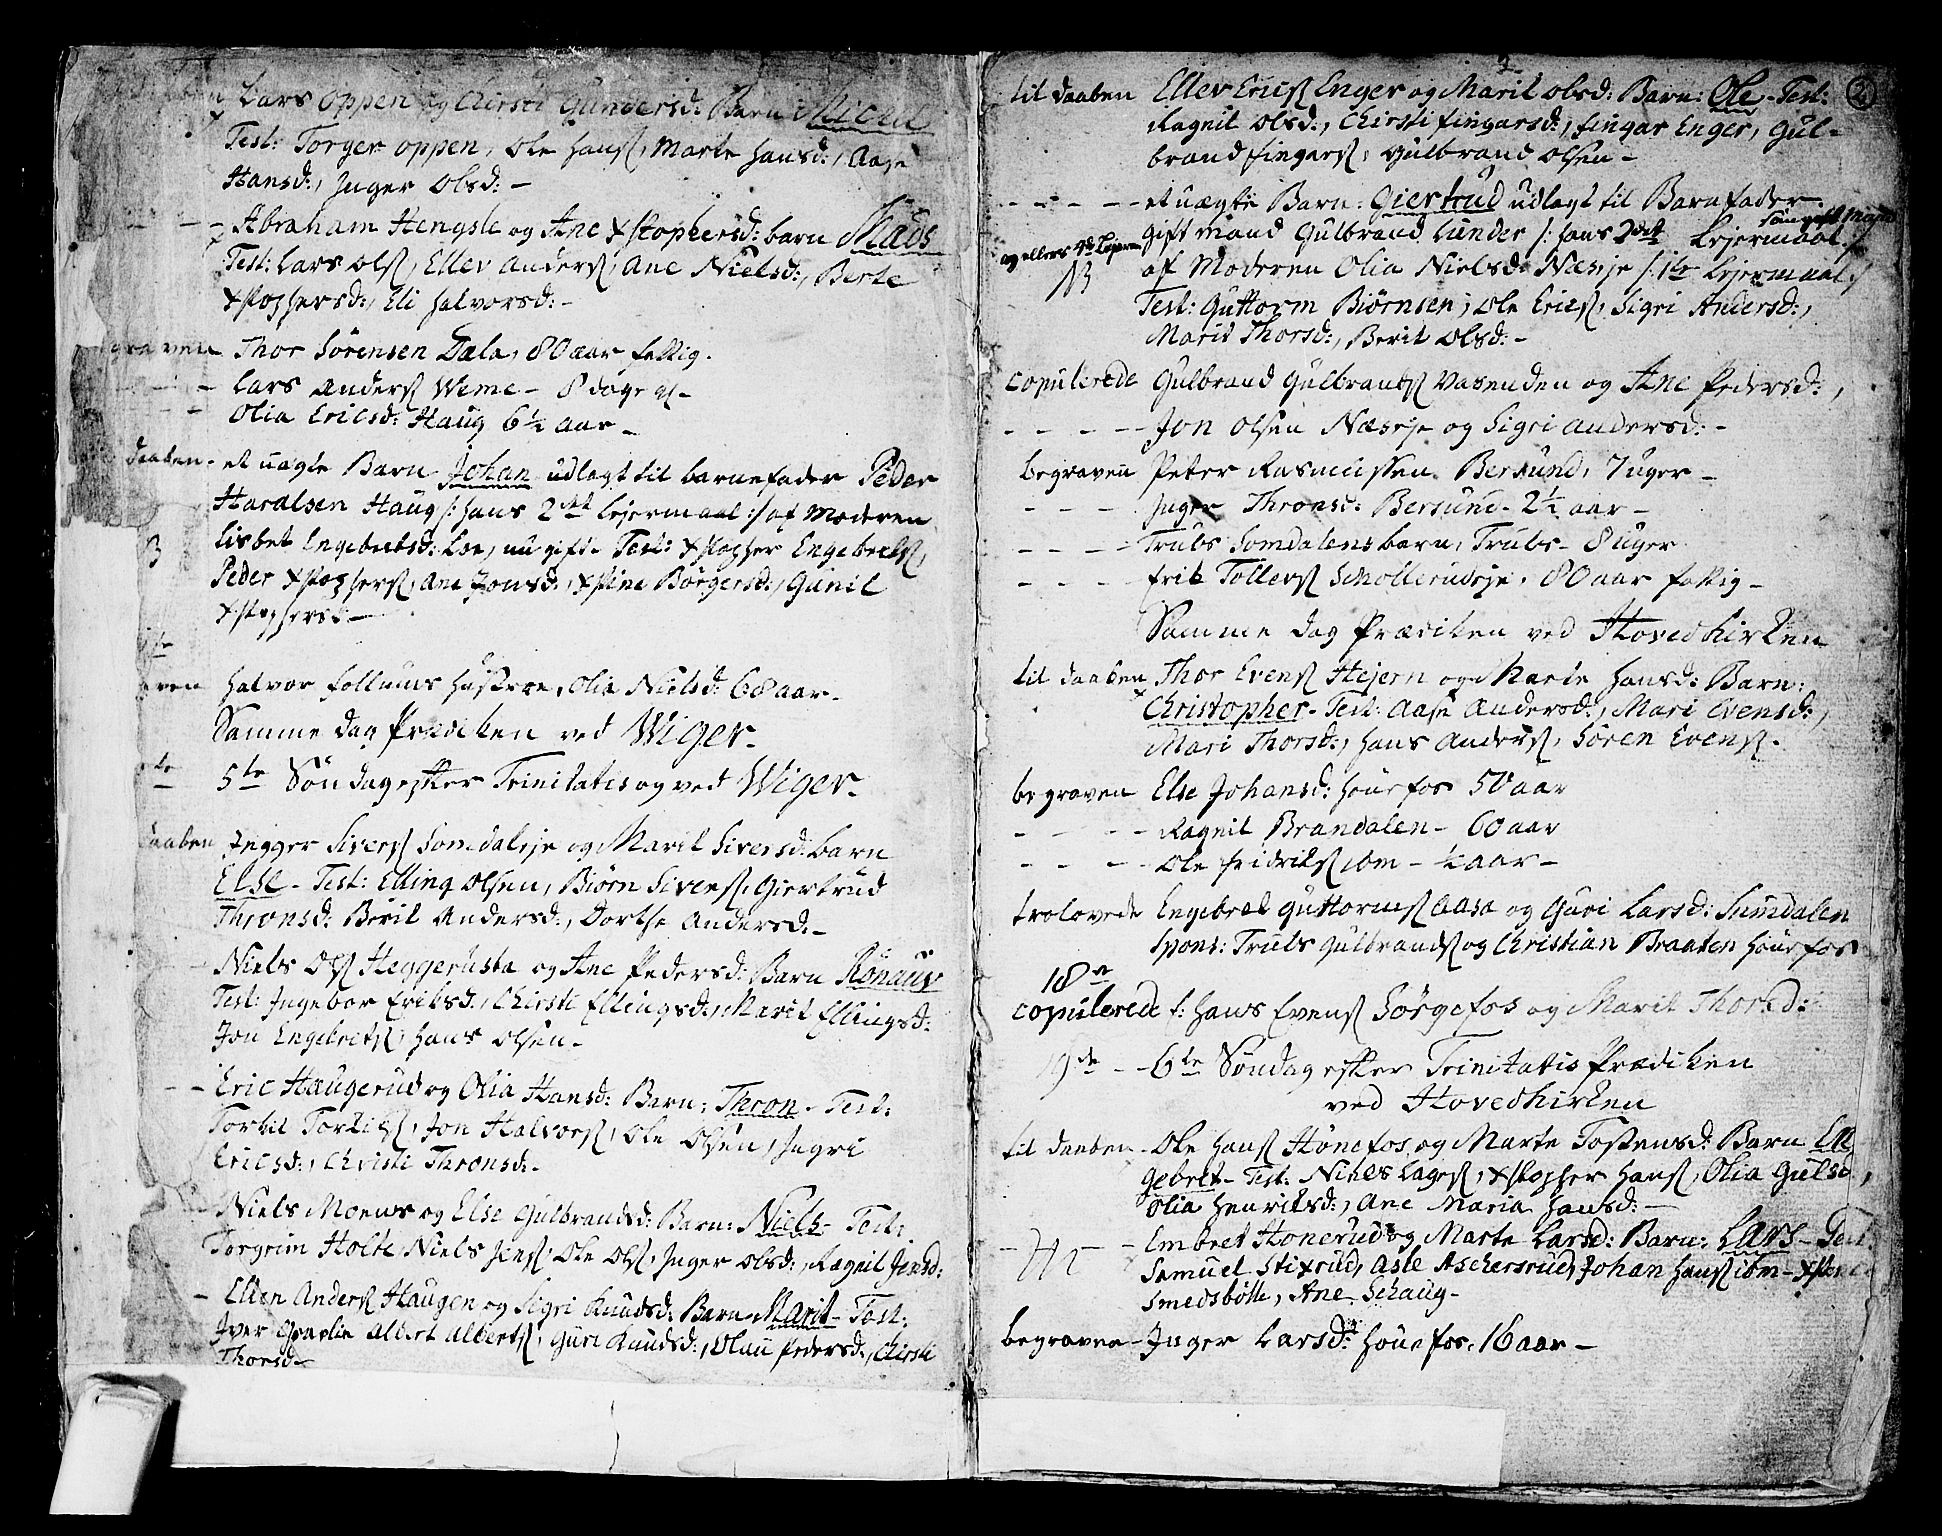 Lars Oppen og Chirsti Gundersd: Barn
Test: Torger Oppen, Ole Hansſ, Marte Hansd:, Aase
Hansd:, Inger Olsd: -
- Abraham Hengsle og Ane Xstophersd: barn Mads
Test: Lars Olsſ, Ellev Andersſ, Ane Nielsd:, Berte
Xstophersd:, Eli Halvorsd: -
graven Thor Sörensen Dæla, 80 aar fattig.
- Lars Andersſ Weme - 8 dage gl -
Olia Ericsd: Haug 6½ aar -
daaben - et uægte Barn Johan udlagt til barnefader Peder
Haralsen Haug /: hans 2det Lejermaal :/ af Moderen
Lisbet Engebretsd: Loe, nu gift - Test: Xstopher Engebretsſ,
B Peder Xstophersſ, Ane Jonsd:, Xstine Börgersd:, Gunil
Xstophersd: -
graven Halvor Follums Hustroe, Olia Nielsd: 68 aar -
Samme dag Prædiken ved Wiger -
5te Söndag efter Trinitatis og ved Wiger -
daaben Siversſ Somdalseje og Marit Siversd: barn
Else - Test: Elling Olsen, Biörn Siversſ, Giertrud
Thronsd: Berit Andersd:, Dorthe Andersd: -
- Niels Olsſ Heggerusta og Ane Pedersd: Barn Rönauv
Test: Ingebor Eriksd:, Chirsti Ellingsd:, Marit Ellingsd:
Jon Engebretsſ, Hans Olsen -
- - Eric Haugerud og Olia Hansd: Barn: Thron - Test:
Torkil Torkilsſ, Jon Halvorsſ, Ole Olsen, Ingri
Ericsd:, Christi Thronsd: -
Niels Moens og Else Gulbrandsd: Barn: Niels - Test:
Torgrim Holte, Niels Jensſ, Ole Olsſ, Inger Olsd:, Ragnil Jensd:
- Ellen Andersſ Haugen og Sigri Knudsd: Barn Marit - Test:
Iver Albert Albertsſ, Guri Knudsd:, Olau Pedersd:, Chirsti
Thorsd -
2
til daaben Ellev Ericsſ Enger og Marit Olsd: Barn: Ole - Test:
Ragnil Olsd:, Chirsti Fingarsd:, Fingar Enger, Gul-
brand Fingarsſ, Gulbrand Olsen -
- - - - et uægte Barn: Giertrud udlagt til Barnfader
gift mand Gulbrand Lunder /: hans 2det Lejermaal
og ellers 4de Lejerm
af Moderen Olia Nielsd: Næseje /: 1te Lejermaal :/
B Test: Guttorm Biörnsen, Ole Ericsſ, Sigri Andersd:,
Marit Thorsd:, Berit Olsd: -
copulerede Gulbrand Gulbrandsſ Vasenden og Ane Pedersd:,
- - - - Jon Olsen Næseje og Sigri Andersd: -
begraven Peter Rasmussen Bersund, 7 uger -
- - - Inger Thronsd: Bersund - 2½ aar -
- - - - Truls Somdalens barn, Truls - 8 uger
- - - - Erik Tollevsſ Schollerudeje, 80 aar fattig -
Samme dag Prædiken ved Hovedkirken
til daaben Thor Evensſ Hejern og Marie Hansd: Barn:
Christopher - Test: Aase Andersd:, Mari Evensd:,
Mari Thorsd:, Hans Andersſ, Sören Evensſ -
begraven Else Johansd: Hönefos 50 aar
- - - Ragnil Brandalen - 60 aar
- - - Ole Fridriksſ ibm - ½ aar -
trolovede Engebret Guttormsſ Aasa og Guri Larsd: Sumdalen
Spons: Truls Gulbrandsſ og Christian Braaten Hönefos
18de
copulerede /: Hans Evensſ Sörgefos og Marit Thorsd:
19de - - 6te Söndag efter Trinitatis Prædiken
ved Hovedkirken
til daaben - Ole Hansſ Hönefos og Marte Tostensd: Barn En
gebret - Test: Niels Lagesſ, Xstopher Hansſ, Olia Gulsd,
Olia Henriksd:, Ane Maria Hansd: -
- - Embret Honerud og Marte Larsd: Barn: Lars - Test:
Samuel Stixrud, Asle Aschersrud, Johan Hansſ ibm -
Smedsbölle, Ane Schaug -
begraven - Inger Larsd: Hönefos, 16 aar -